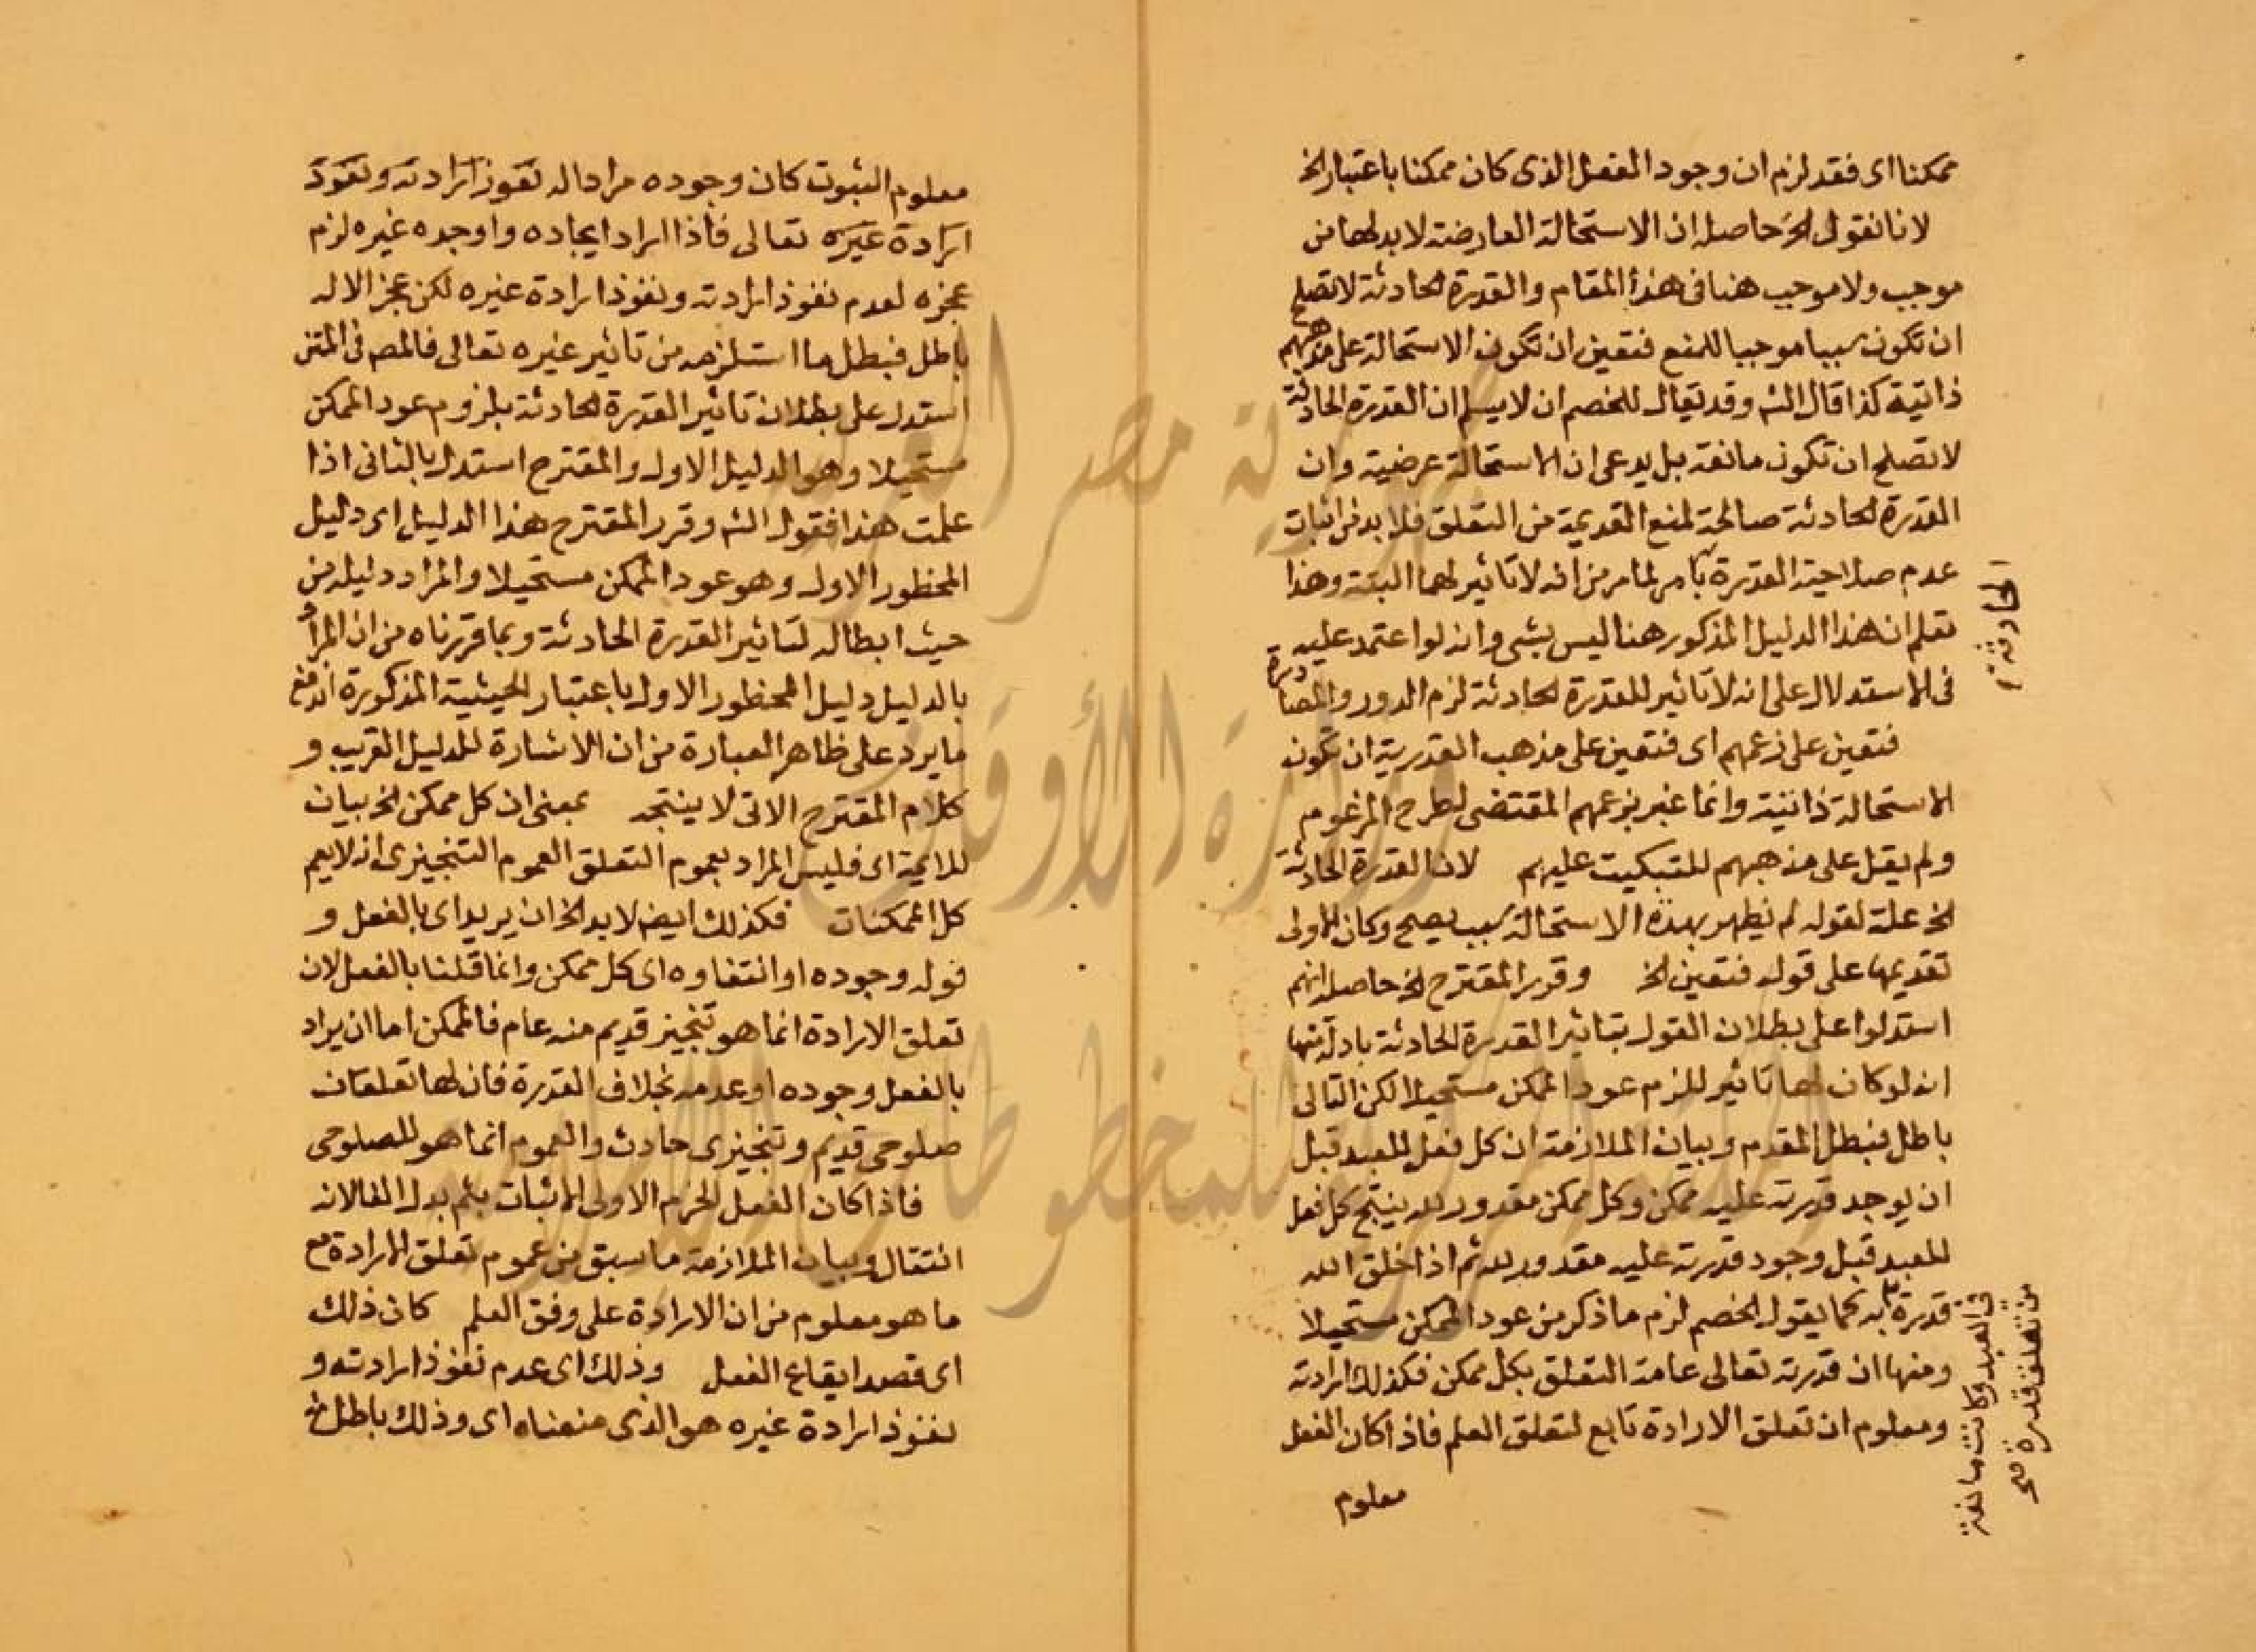 ممكنا اى فقد لزم ان وجود الفعل الذى كان ممكنا باعتبار الخ
لانا نقول الخ حاصله ان الاستحالة العارضة لا بد لها من
موجب ولا موجب هنا فى هذا المقام والقدرة الحادثة لا تصلح
ان تكون سببا موجبا للمنع فتعين ان تكون الاستحالة على مذهبهم
ذاتية كذا قال الش وقد يقال للخصم ان لا يسلم ان القدرة الحادثة
لا تصلح ان تكون مانعة بل يدعى ان الاستحالة عرضية وان
القدرة الحادثة صالحة لمنع القديمة من التعلق فلا بد من اثبات
عدم صلاحية القدرة لما مر من انه لا تاثير لها البتة وهذا
الحادثة
تعلم ان هذا الدليل المذكور هنا ليس بشى وانه لو اعتمد عليه
فى الاستدلال على انه لا تاثير للقدرة الحادثة لزم الدور والمصادرة
فتعين على زعمهم اى فتعين على مذهب القدرية ان تكون
الاستحالة ذاتية وانما عبر بزعمهم المقتضى لطرح المزعوم
ولم يقل على مذهبهم للتبكيت عليهم لان القدرة الحادثة
الخ علة لقوله لم يظهر بهذه الاستحالة سبب يصح وكان الاولى
تقديمها على قوله فتعين الخ وقرر المقترح الخ حاصله انهم
استدلوا على بطلان القول بتاثير القدرة الحادثة بادلة منها
انه لو كان لها تاثير للزم عود الممكن مستحيلا لكن التالى
باطل فبطل المقدم وبيان الملازمة ان كل فعل للعبد قبل
ان يوجد قدرته عليه ممكن وكل ممكن مقدور لله ينتج كل فعل
للعبد قبل وجود قدرته عليه مقدور لله ثم اذا خلق الله
قدرة كما يقول الخصم لزم ما ذكر من عود الممكن مستحيلا
فى العبد وكانت مانعة
من تعلق قدرة
ومنها ان قدرته تعالى عامة التعلق بكل ممكن فكذلك ارادته
ومعلوم ان تعلق الارادة تابع لتعلق العلم فاذا كان الفعل
معلوم
معلوم الثبوت كان وجوده مرادا له نفوذ ارادته ونفوذ
ارادة غيره تعالى فاذا اراد ايجاده واوجده غيره لزم
عجزه لعدم نفوذ ارادته ونفوذ ارادة غيره لكن عجز الاله
باطل فبطل ما استلزمه من تاثير غيره تعالى فالمص فى المتن
استدل على بطلان تاثير القدرة الحادثة بلزوم عود الممكن
مستحيلا وهو الدليل الاول والمقترح استدل بالثانى اذا
علمت هذا فقول الش وقرر المقترح هذا الدليل اى دليل
المحظور الاول وهو عود الممكن مستحيلا والمراد دليله من
حيث ابطاله لتاثير القدرة الحادثة وبما قررناه من ان المراد
بالدليل دليل المحظور الاول باعتبار الحيثية المذكورة اندفع
ما يرد على ظاهر العبارة من ان الاشارة للدليل القريب و
كلام المقترح الاتى لا ينتجه بمعنى ان كل ممكن الخ بيان
للايمة اى فليس المراد بعموم التعلق العموم التنجيزى انه لا يعم
كل الممكنات فكذلك ايضا لا بد الخ ان يريد اى بالفعل و
قوله وجوده او انتفاوه اى كل ممكن وانما قلنا بالفعل لان
تعلق الارادة انما هو تنجيز قديم منه عام فالممكن اما ان يراد
بالفعل وجوده او عدمه بخلاف القدرة فان لها تعلقان
صلوحى قديم وتنجيزى حادث والعموم انما هو للصلوحى
فاذا كان الفعل الخ الاولى الاتيان بثم بدل الفا لانه
انتقال وبيان الملازمة ما سبق من عموم تعلق الارادة مع
ما هو معلوم من ان الارادة على وفق العلم كان ذلك
اى قصد ايقاع الفعل وذلك اى عدم نفوذ ارادته و
نفوذ ارادة غيره هو الذى منعناه اى وذلك باطل